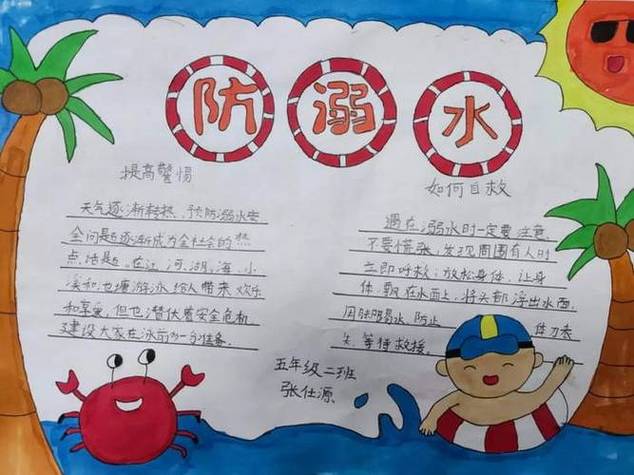 防溺水
提高警惕
天气逐渐转热，预防溺水安
全问题逐渐成为全社会的热
点话题。在江、河、湖、海、小
溪和池塘游泳给人带来欢乐
和享受，但也潜伏着安全危机
建设大家在泳前分准备。
如何自救
遇在溺水时一定要注意
不要慌张，发现周围有人时
立即呼救；放松身体，让身
体飘在水面上，将头部浮出水面，
用脚踢水，防止 体力丧
失，等待救援。
五年级二班
张仕源